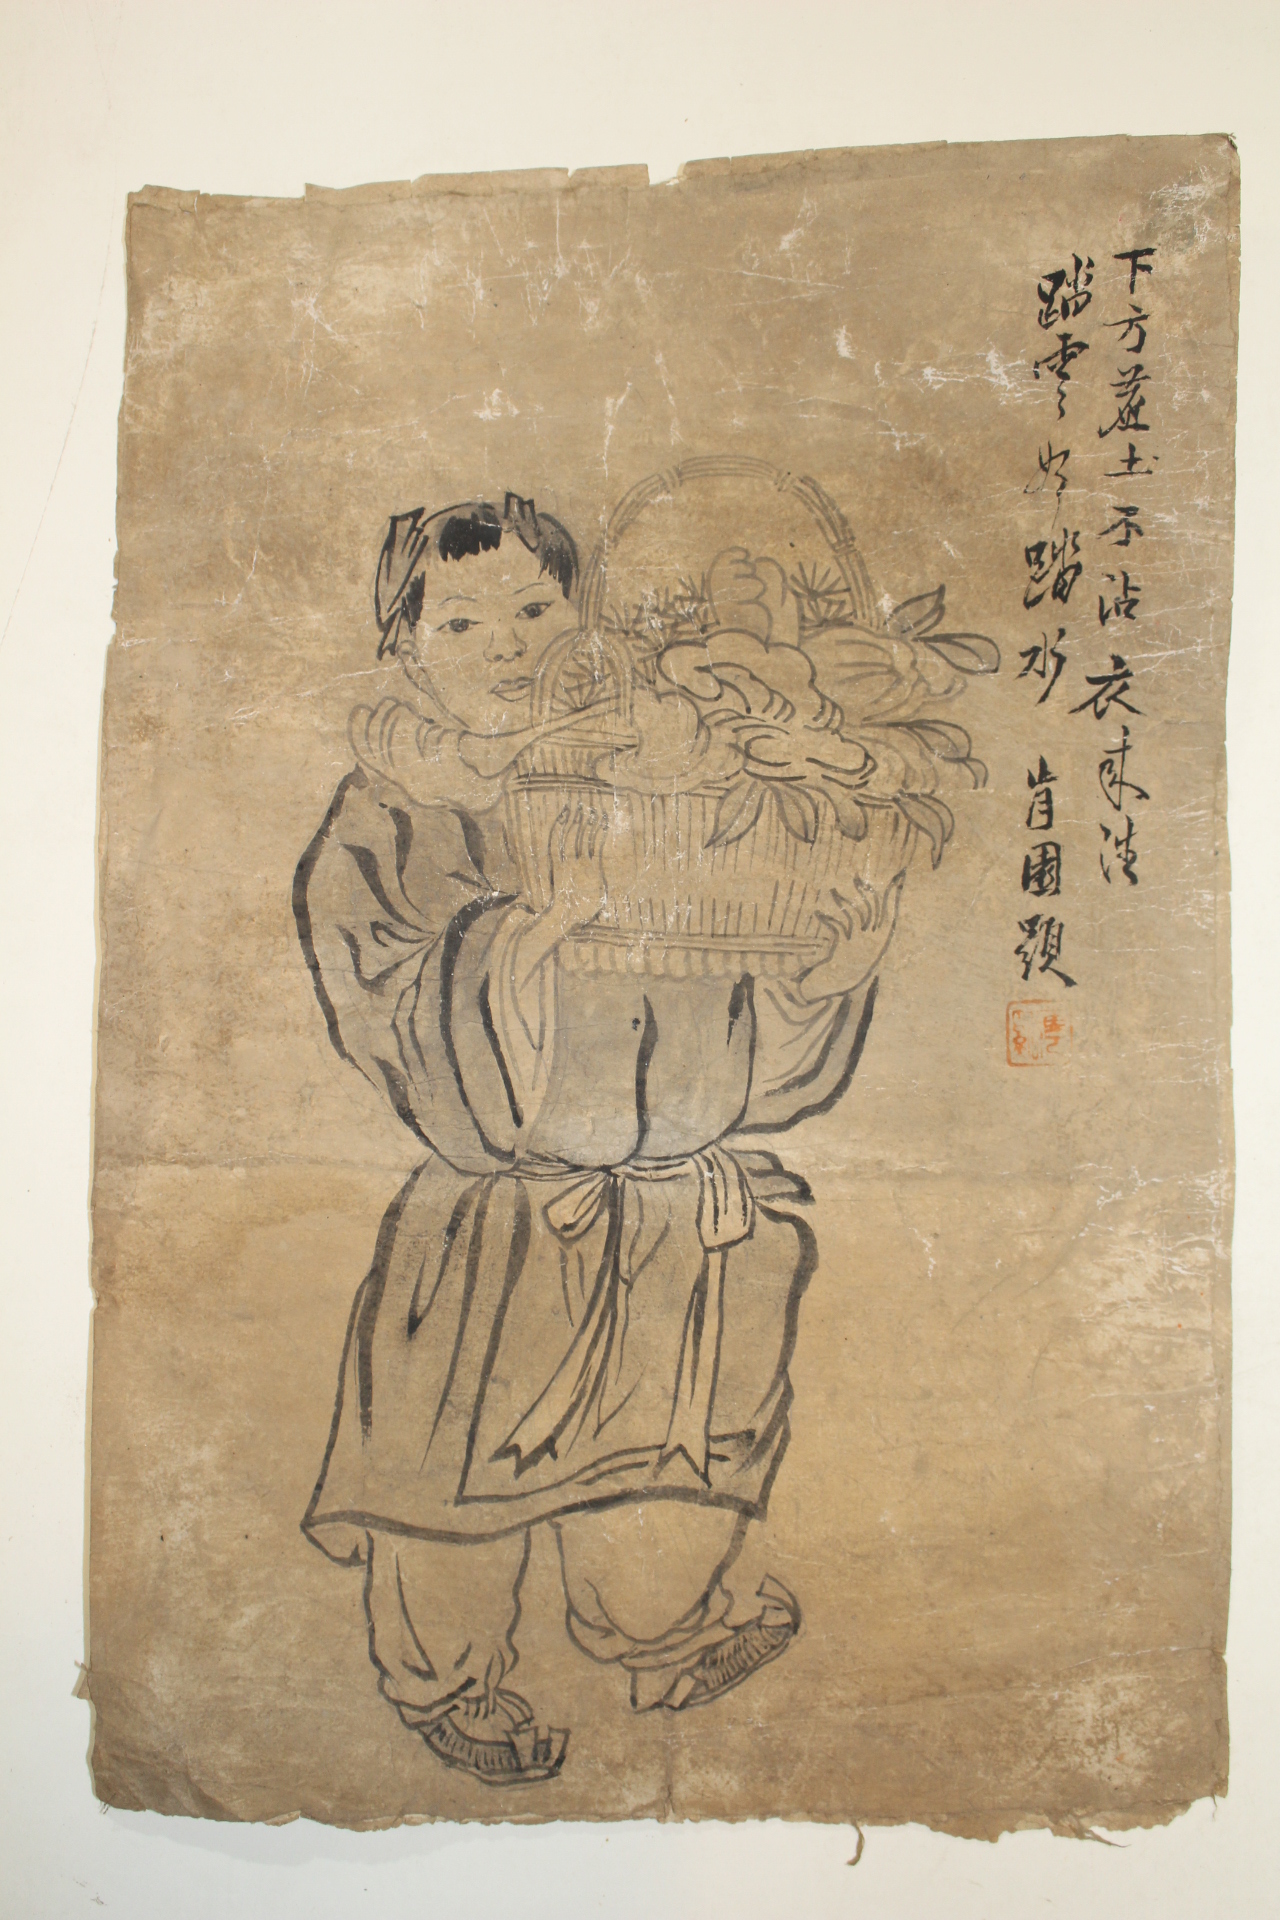 下方塵土不沾衣来往
踏雲如踏水 肯園題